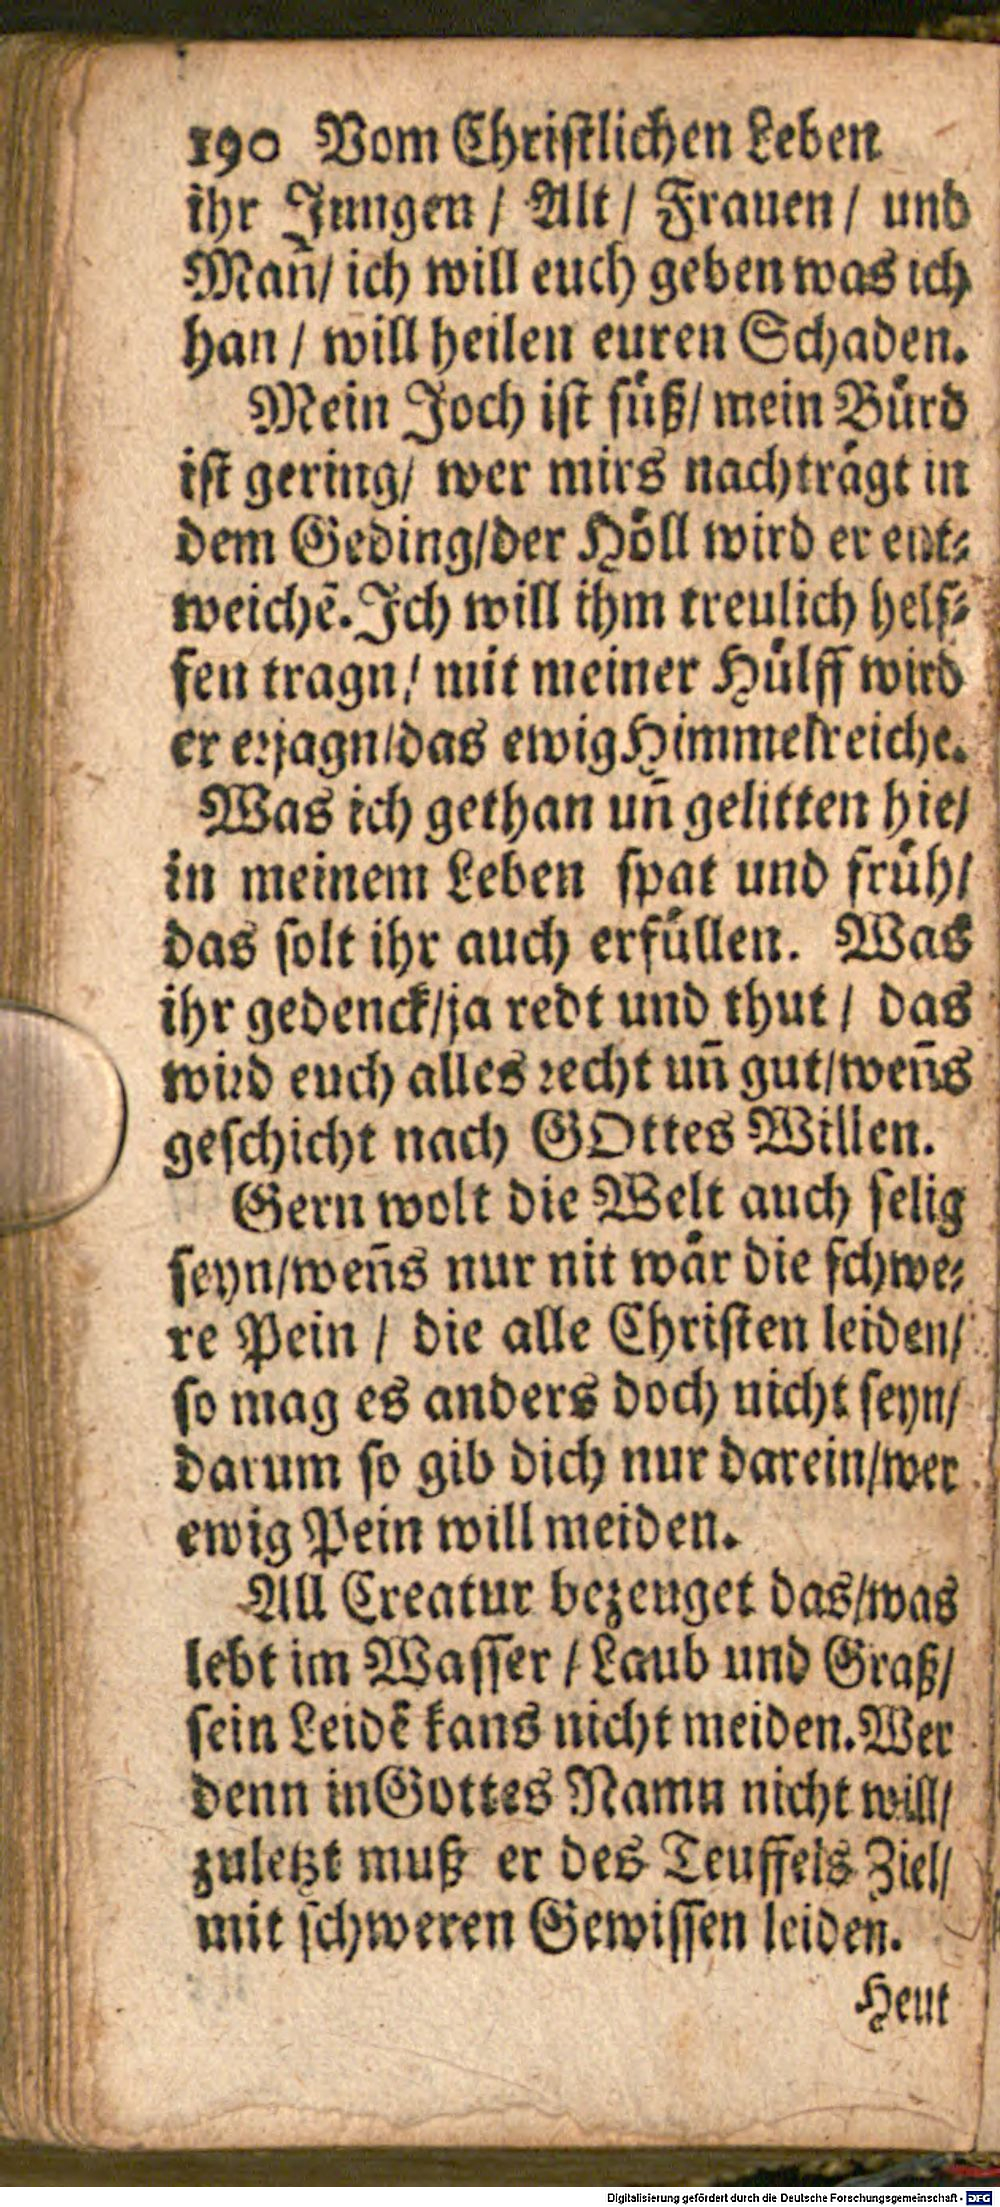 190 Vom Chriſtlichen Leben
ihr Jungen / Alt / Frauen / und
Man̄/ ich will euch geben was ich
han / will heilen euren Schaden.
Mein Joch iſt ſuͤß/ mein Buͤrd
iſt gering/ wer mirs nachtraͤgt in
dem Geding/der Hoͤll wird er ent⸗
weichē. Jch will ihm treulich helf⸗
fen tragn/ mit meiner Huͤlff wird
er erjagn/das ewig Himmelreiche.
Was ich gethan un̄ gelitten hie/
in meinem Leben ſpat und fruͤh/
das ſolt ihr auch erfuͤllen. Was
ihr gedenck/ja redt und thut / das
wird euch alles recht un̄ gut/wen̄s
geſchicht nach GOttes Willen.
Gern wolt die Welt auch ſelig
ſeyn/wen̄s nur nit waͤr die ſchwe⸗
re Pein / die alle Chriſten leiden/
ſo mag es anders doch nicht ſeyn/
darum ſo gib dich nur darein/wer
ewig Pein will meiden.
All Creatur bezeuget das/was
lebt im Waſſer / Laub und Graß/
ſein Leidē kans nicht meiden. Wer
denn in Gottes Namn nicht will/
zuletzt muß er des Teuffels Ziel/
mit ſchweren Gewiſſen leiden.
Heut
Digitalisierung gefördert durch die Deutsche Forschungsgemeinschaft - DFG